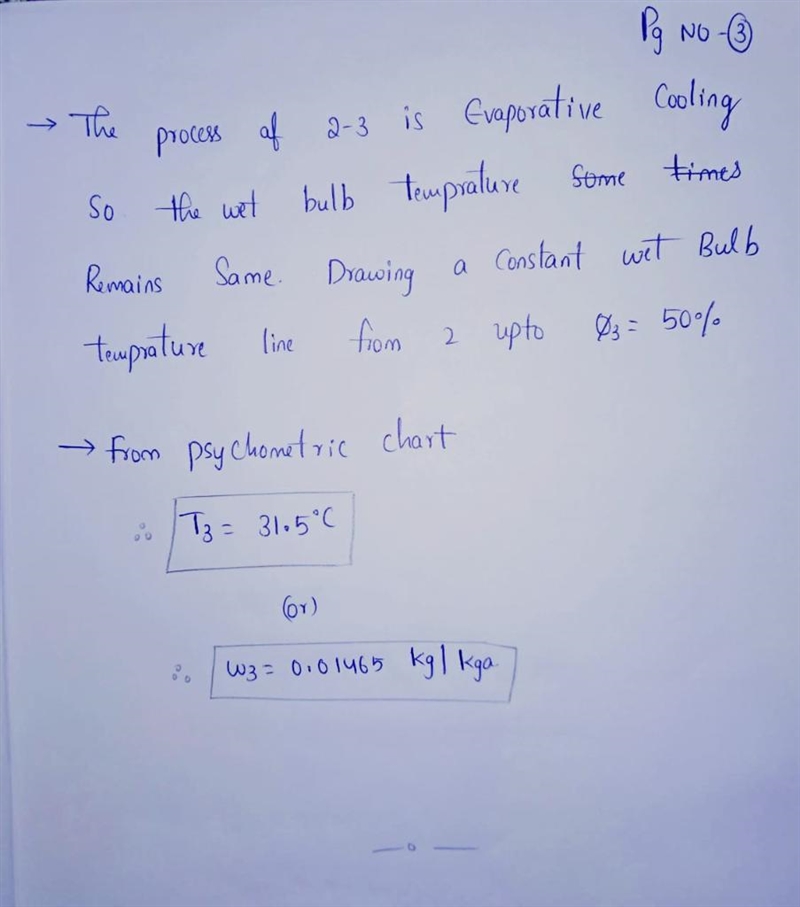 Pg NO - ③
→ The process of 2-3 is Evaporative Cooling
So the wet bulb temprature some times
Remains Same. Drawing a Constant wet Bulb
temprature line from 2 upto Ø₃ = 50%
→ from psychometric chart
∴ T₃ = 31.5°C
(or)
∴ w₃ = 0.01465 kg/kga